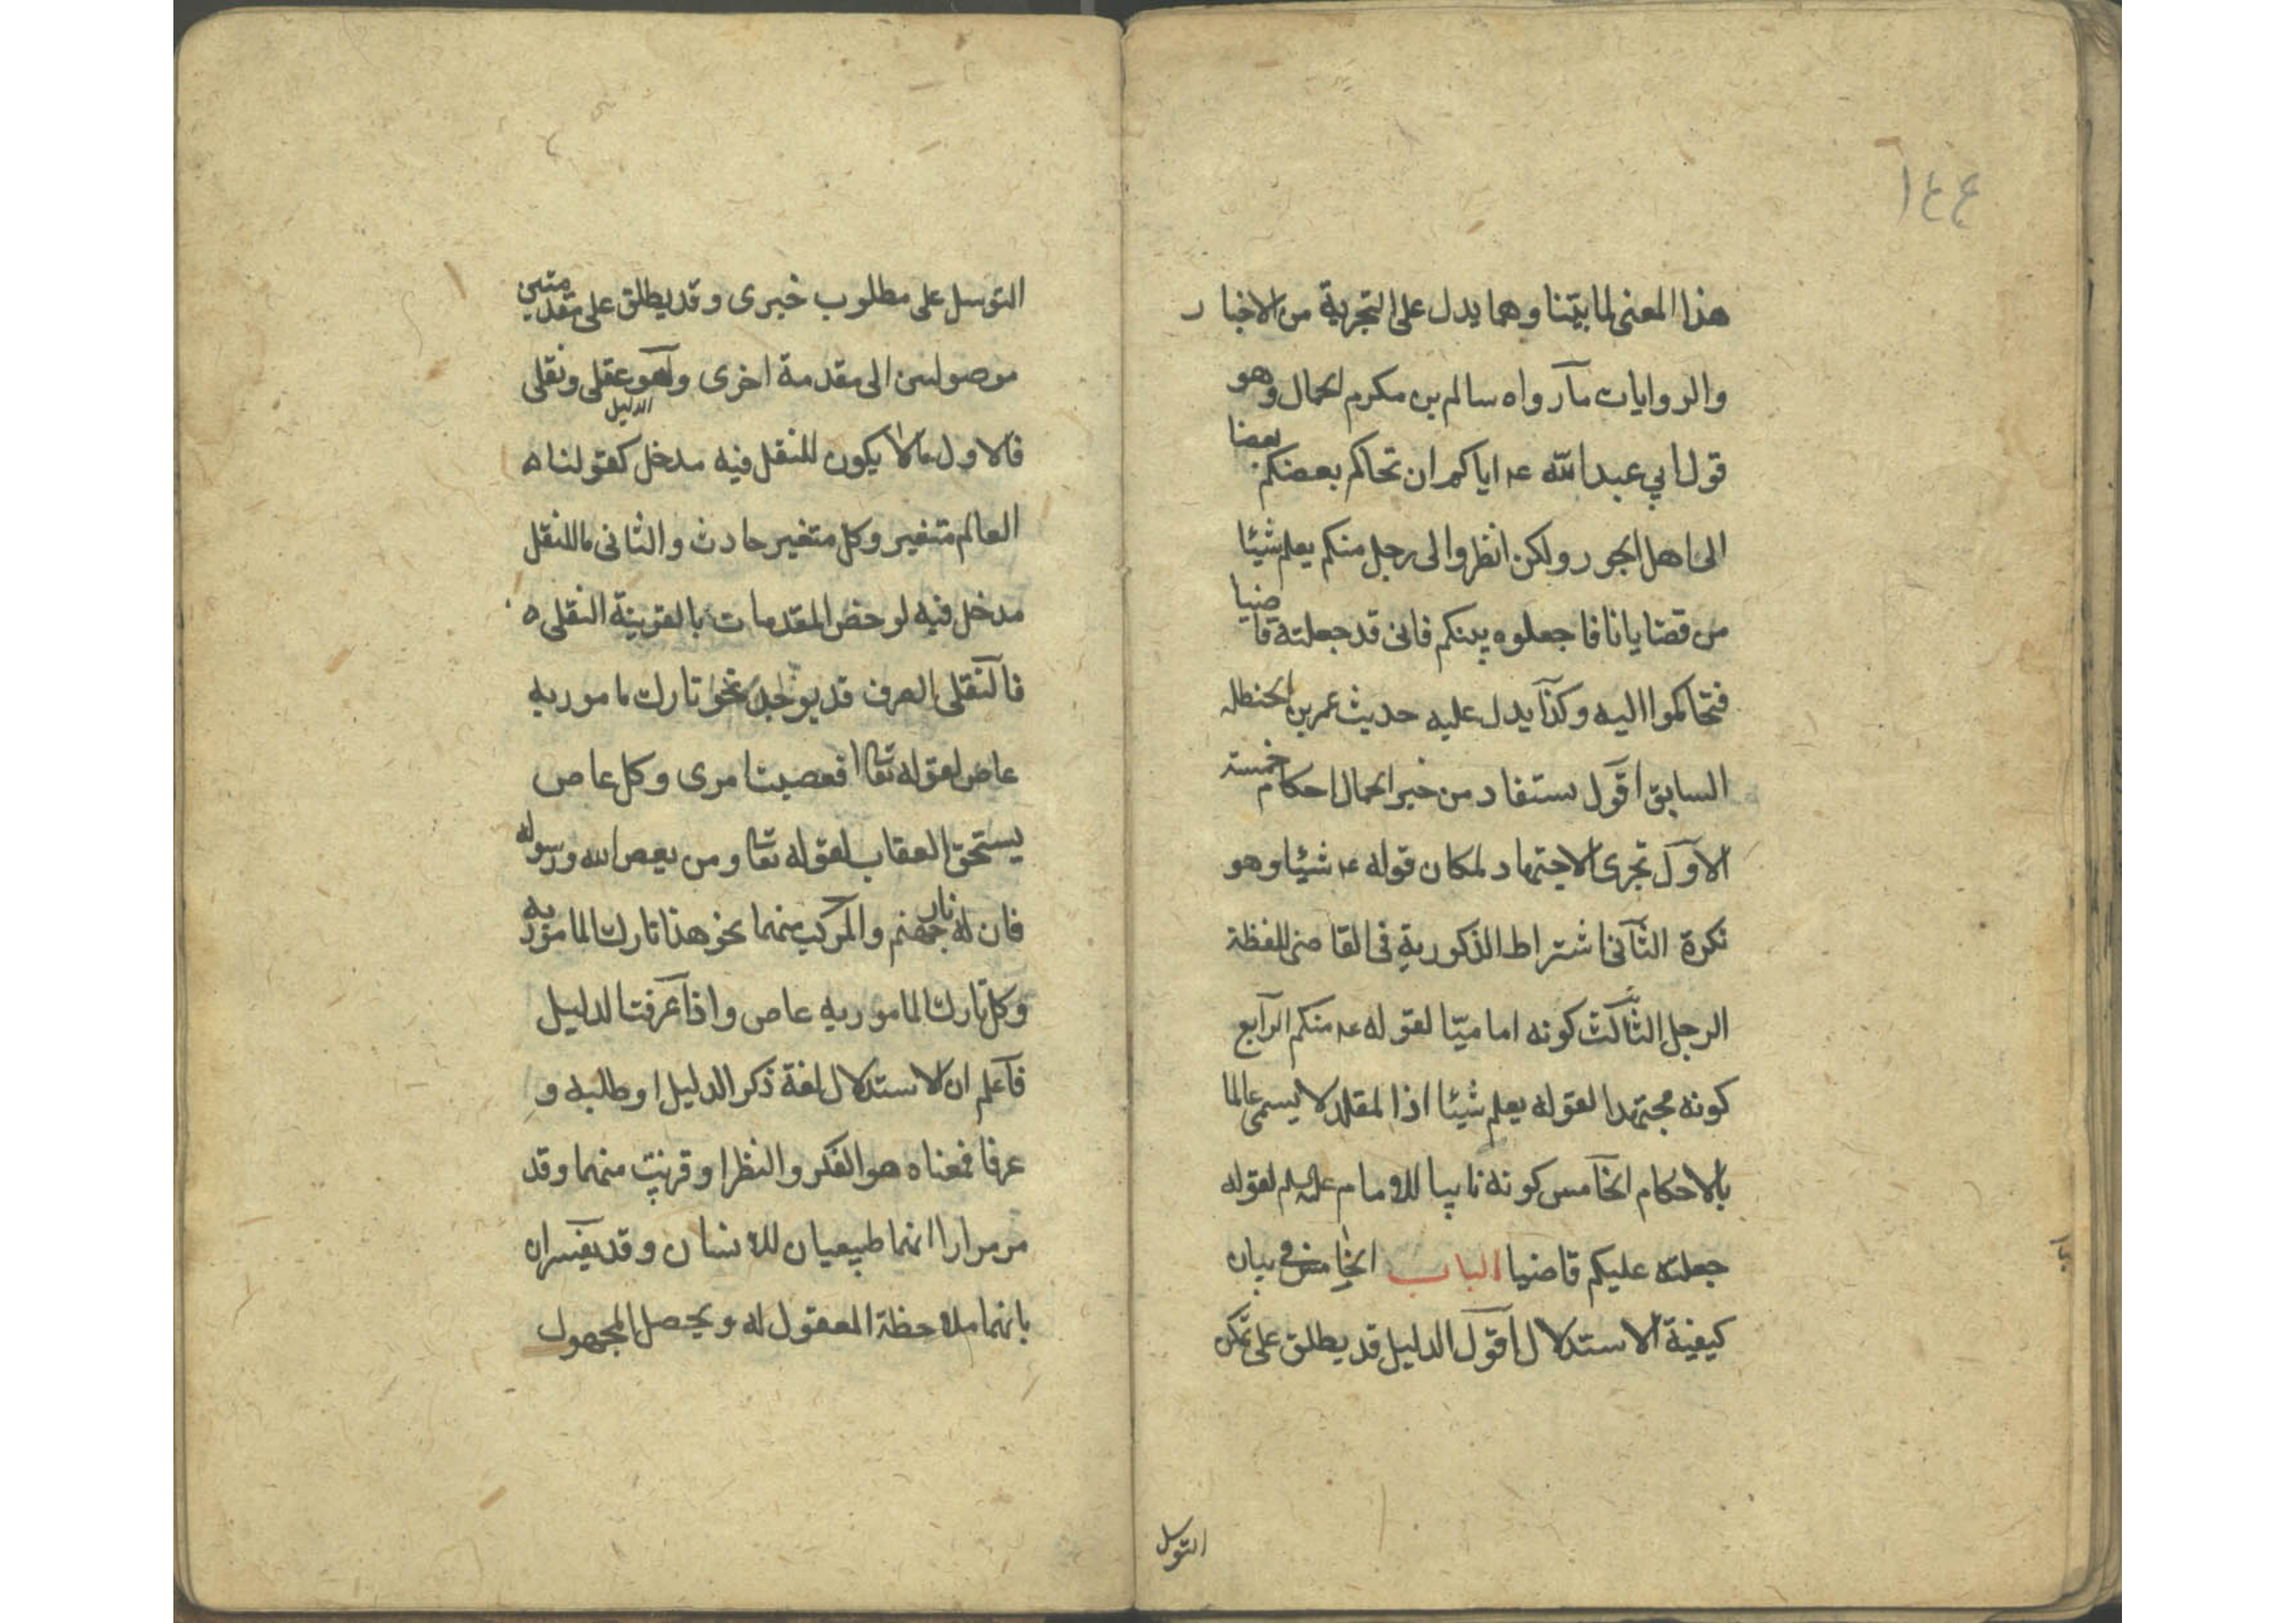 ١٤٤
هذا المعنى لما بيّنا وهما يدل على التجرية من الاخبار
والروايات مآ رواه سالم بن مكرم الجمال وهو
قول ابي عبد الله عه اياكم ان تحاكم بعضكم بعضا
الى اهل الجور ولكن انظروا الى رجل منكم يعلم شيئا
من قضايانا فاجعلوه بينكم فانى قد جعلته قاضيا
فتحاكموا اليه وكذآ يدل عليه حديث عمر بن الحنظله
السابق اقول يستفاد من خبر الجمال احكام خمسة
الاول تجرى الاجتهاد لمكان قوله عه شيئا وهو
نكرة الثآنى اشتراط الذكورية فى القاضى للفظة
الرجل الثآلث كونه اماميّا لقوله عه منكم الرآبع
كونه مجتهدا لقوله يعلم شيئا اذ المقلد لا يسمى عالما
بالاحكام الخآمس كونه نايبا للامام عليه السلم لقوله
جعلته عليكم قاضيا الباب الخامس فى بيان
كيفية الاستدلال اقول الدليل قد يطلق على تمكن
التوسل
التوسل على مطلوب خبرى وقد يطلق على مقدمتين
موصولتين الى مقدمة اخرى وآهو عقلى ونقلى
الدليل
فالاول مالا يكون للنقل فيه مدخل كقولنا ه
العالم متغير وكل متغير حادث والثانى ماللنقل
مدخل فيه لو خض المقدمات بالقرينة النقلى ه
فآلنقلى الصرف قد يوجد نحو تارك مامور به
عاص لقوله تعا افعصيت امرى وكل عاص
يستحق العقاب لقوله تعا ومن يعص الله ورسوله
فان له نار جهنم والمركب منهما نحو هذا تارك المامور به
وكل تارك المامور به عاص واذآ عرفت الدليل
فآعلم ان الاستدلال لغة ذكر الدليل او طلبه و
عرفا فمعناه هو الفكر والنظر او قرينت منهما وقد
مر مرارا انهما طبيعيان للانسان وقد يفسران
بانهما ملاحظة المعقول له ويحصل المجهول